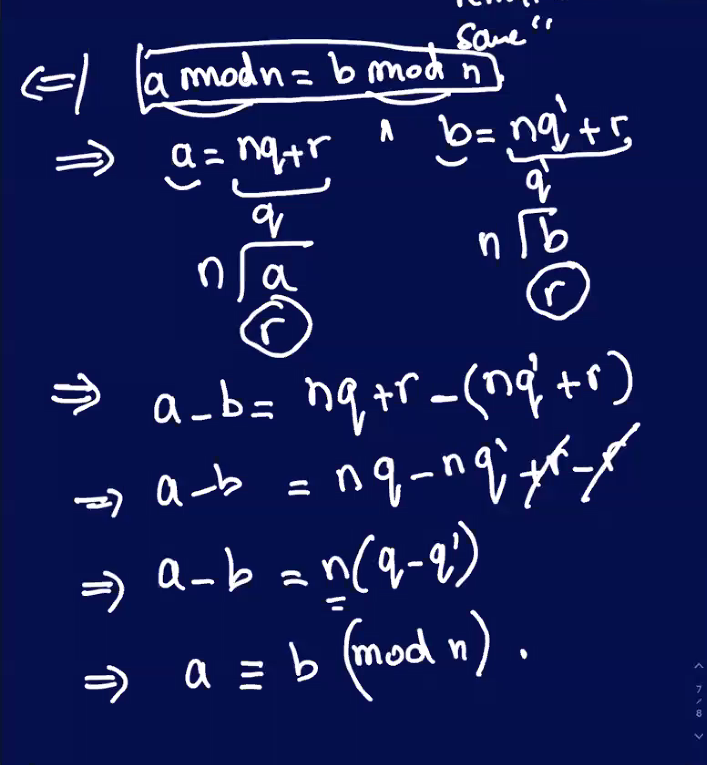 same"
⇐| a mod n = b mod n
⇒ a = nq + r ∧ b = nq' + r
q q'
n a n b
r r
⇒ a - b = nq + r - (nq' + r)
⇒ a - b = nq - nq' + r - r
⇒ a - b = n(q - q')
⇒ a ≡ b (mod n).
7
/
8